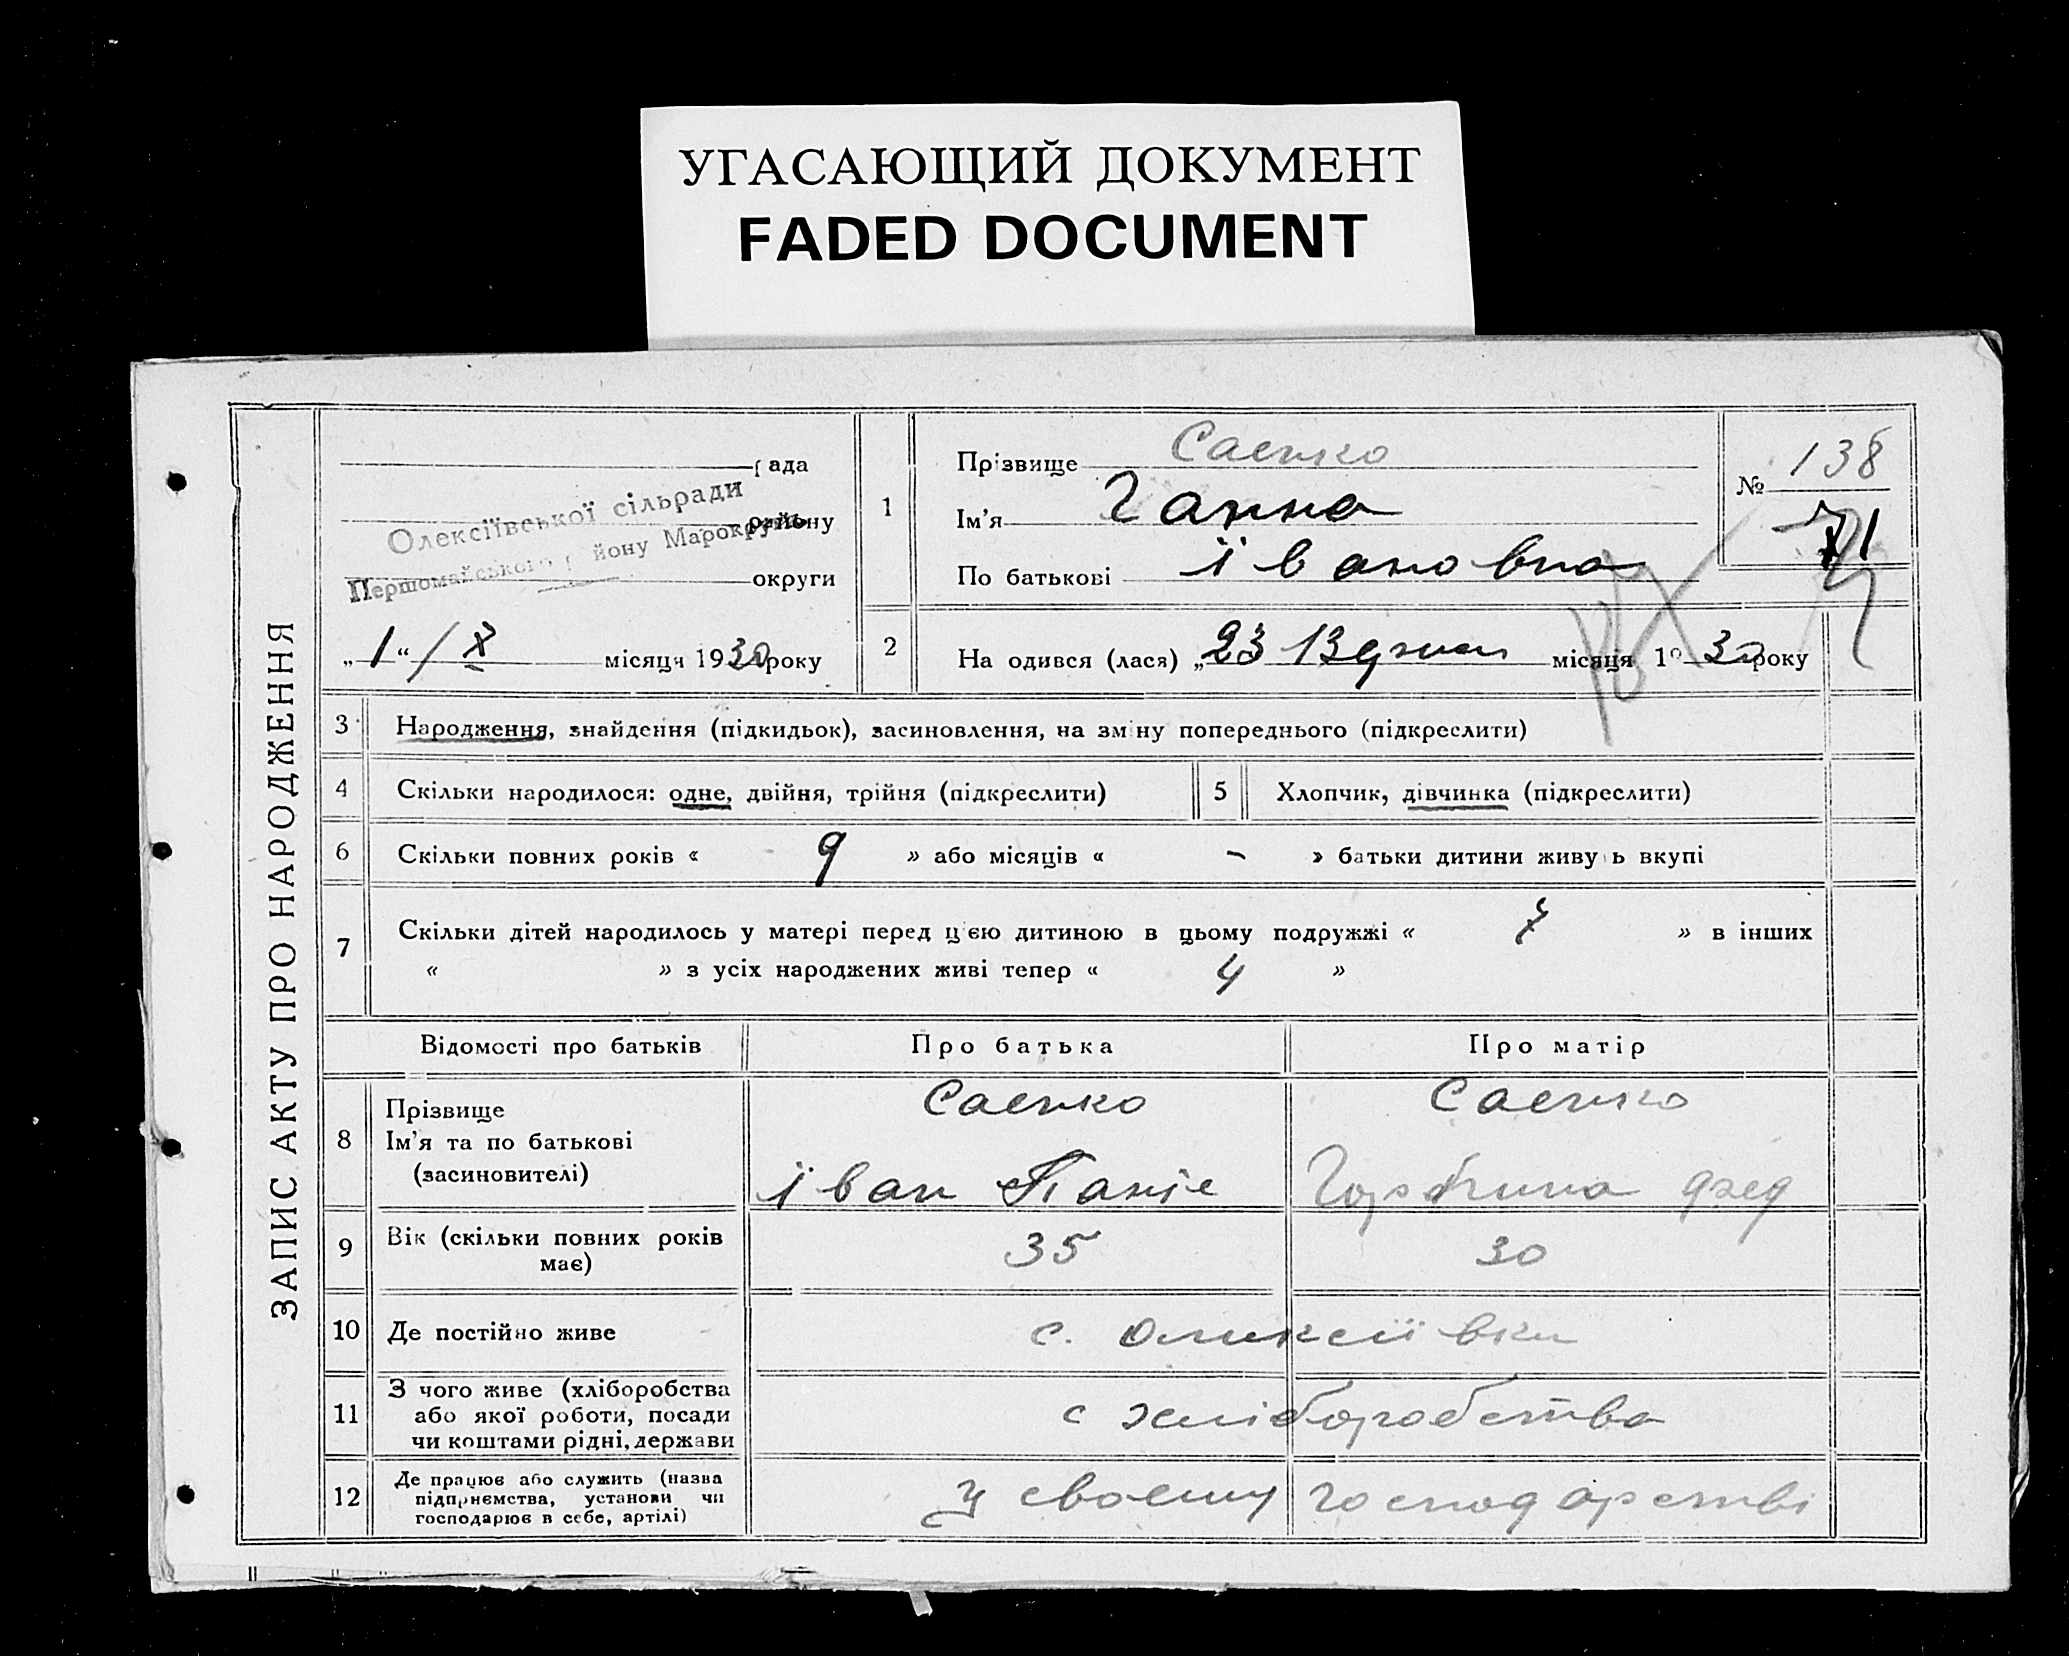 УГАСАЮЩИЙ ДОКУМЕНТ
FADED DOCUMENT
ЗАПИС АКТУ ПРО НАРОДЖЕННЯ
рада
Олексіївської сільради
району
Першомайського району Марокруги
округи
„ 1 “ / X місяця 1930 року
1
Прізвище Саенко
Ім'я Ганна
По батькові Івановна
№ 138
2
На одився (лася) „ 23 місяця 19 30 року
3 Народження, знайдення (підкидьок), засиновлення, на зміну попереднього (підкреслити)
4 Скільки народилося: одне, двійня, трійня (підкреслити)
5 Хлопчик, дівчинка (підкреслити)
6 Скільки повних років « 9 » або місяців « - » батьки дитини живуть вкупі
7 Скільки дітей народилось у матері перед цією дитиною в цьому подружжі « 7 » в інших
« » з усіх народжених живі тепер « 4 »
Відомості про батьків Про батька Про матір
8
Прізвище Саенко Саенко
Ім'я та по батькові
(засиновителі) Іван
9 Вік (скільки повних років має) 35 30
10 Де постійно живе с.
11
З чого живе (хліборобства
або якої роботи, посади
чи коштами рідні, держави
с хліборобства
12
Де працює або служить (назва
підприємства, установи чи
господарює в себе, артілі)
у своєму господарстві